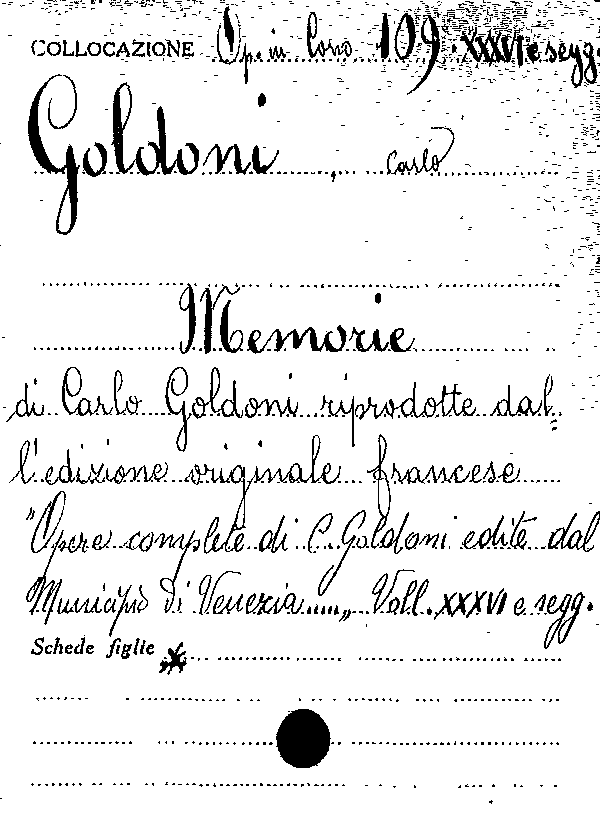 COLLOCAZIONE Op. in Corso 109. XXXVI e segg.
Goldoni, Carlo
Memorie
di Carlo Goldoni riprodotte dal-
l'edizione originale francese
"Opere complete di C. Goldoni edite dal
Municipio di Venezia....," Voll. XXXVI e segg.
Schede figlie *